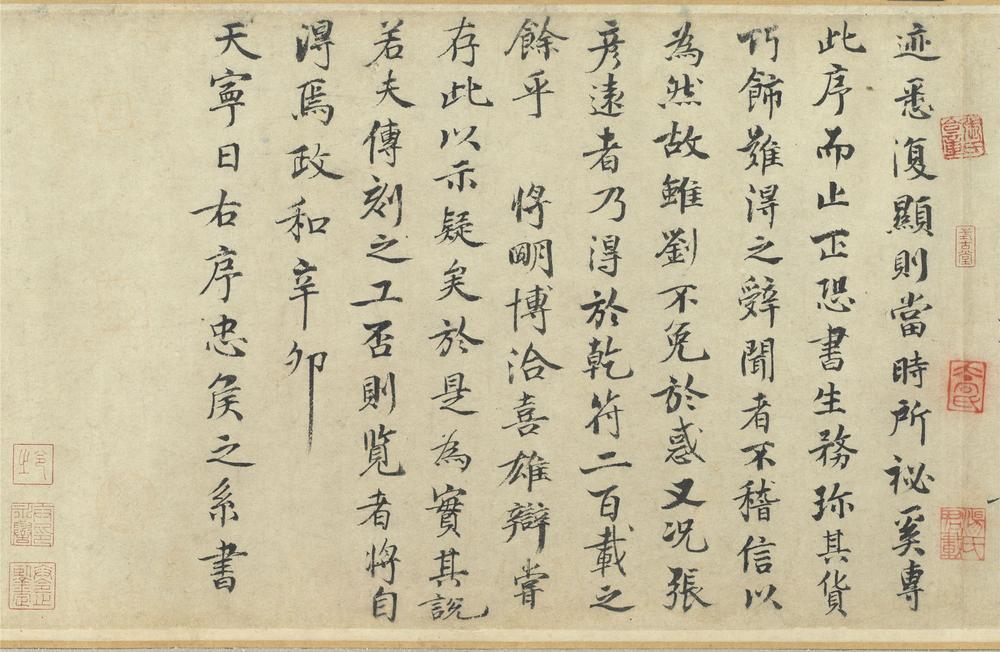 迹悉復顯則當時所祕奚專
此序而止正恐書生務珎其貨
巧飾難得之辭聞者不稽信以
為然故雖劉不免於惑又況張
彦遠者乃得於乾符二百載之
餘乎 将明博洽喜雄辯嘗
存此以示疑矣於是為實其説
若夫傳刻之工否則覧者將自
得焉政和辛卯
天寧日右序忠矦之系書